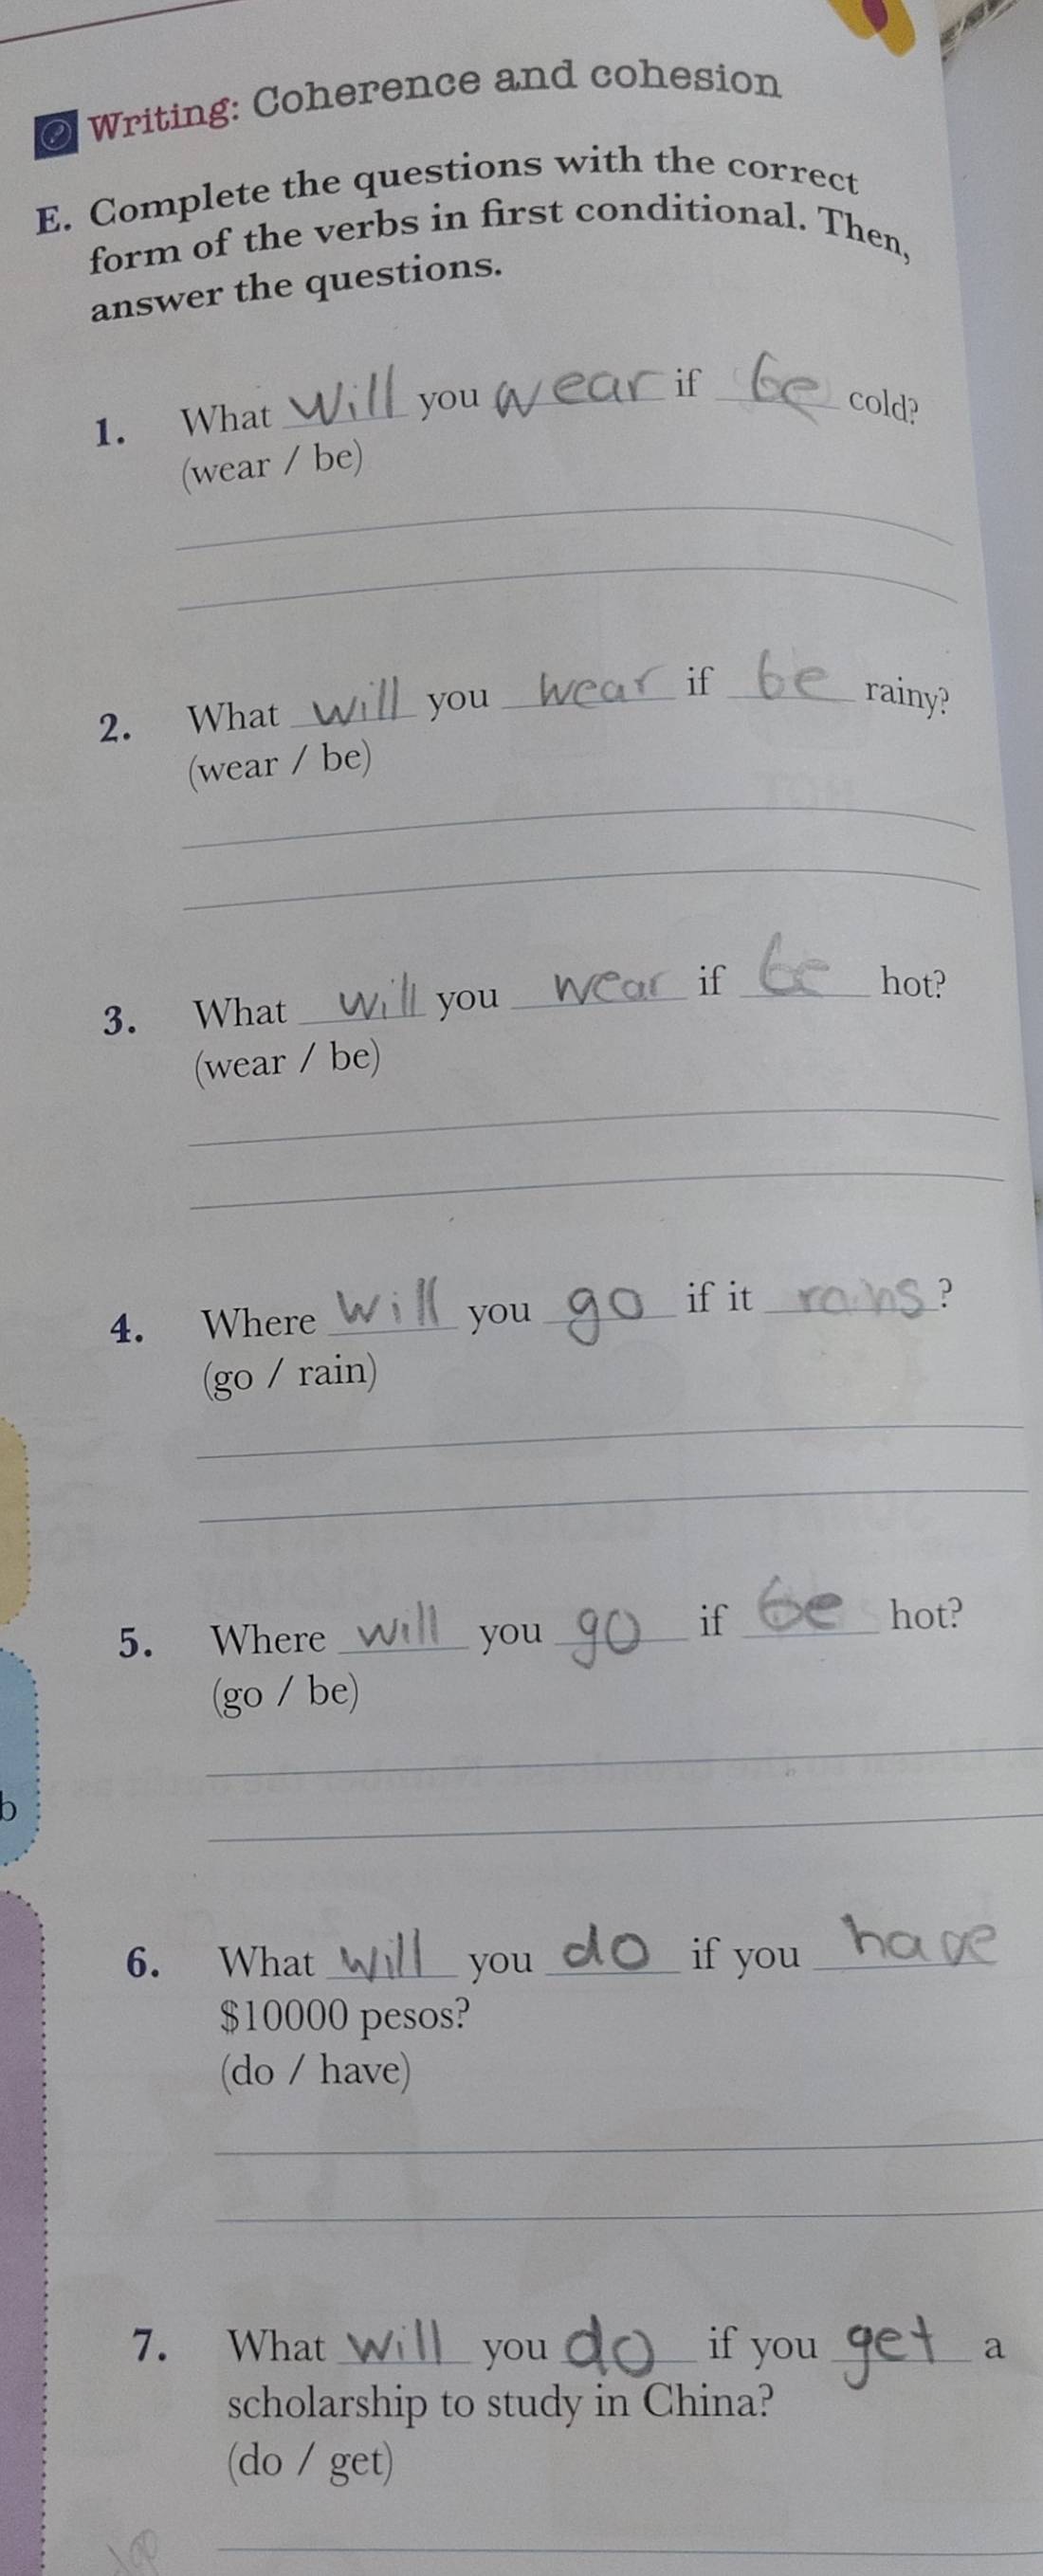 Writing: Coherence and cohesion
E. Complete the questions with the correct
form of the verbs in first conditional. Then,
answer the questions.
1. What will you wear if be cold?
(wear / be)
2. What will you wear if be rainy?
(wear / be)
3. What will you wear if be hot?
(wear / be)
4. Where will you go if it rains?
(go / rain)
5. Where will you go if be hot?
(go / be)
b
6. What will you do if you have
$10000 pesos?
(do / have)
7. What will you do if you get a
scholarship to study in China?
(do / get)